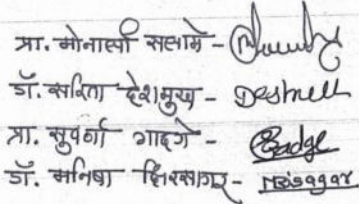 प्रा. मोनाली सलामे -
डॉ. सरिता देशमुख - Deshmukh
प्रा. सुवर्णा गादगे - Gadge
डॉ. मनिषा क्षिरसागर -